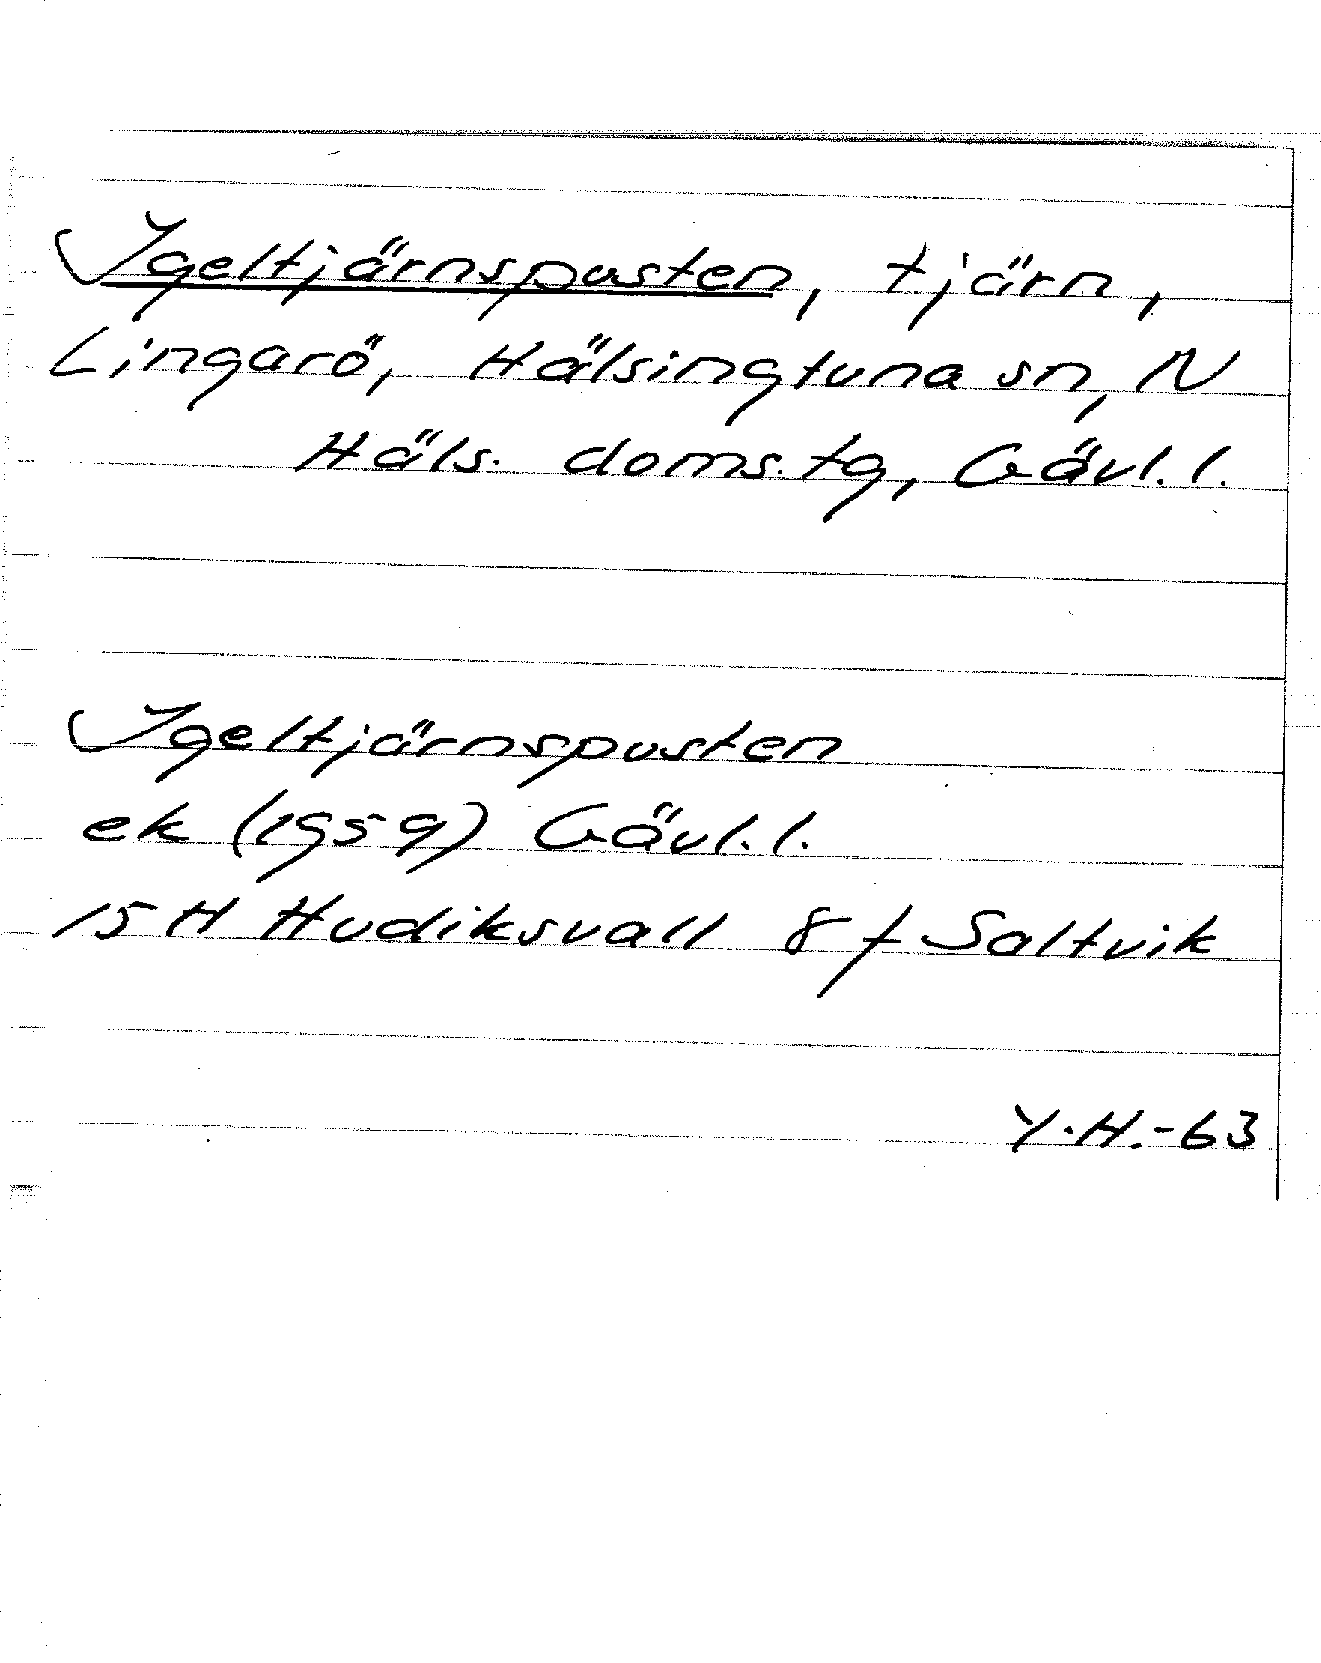 Igeltjärnspusten, tjärn,
Lingarö, Hälsingtuna sn, N
Häls. doms. tg, Gävl. l.
Igeltjärnspusten
ek (1959) Gävl. l.
15 H Hudiksvall 8 f Saltvik
Y.H.-63